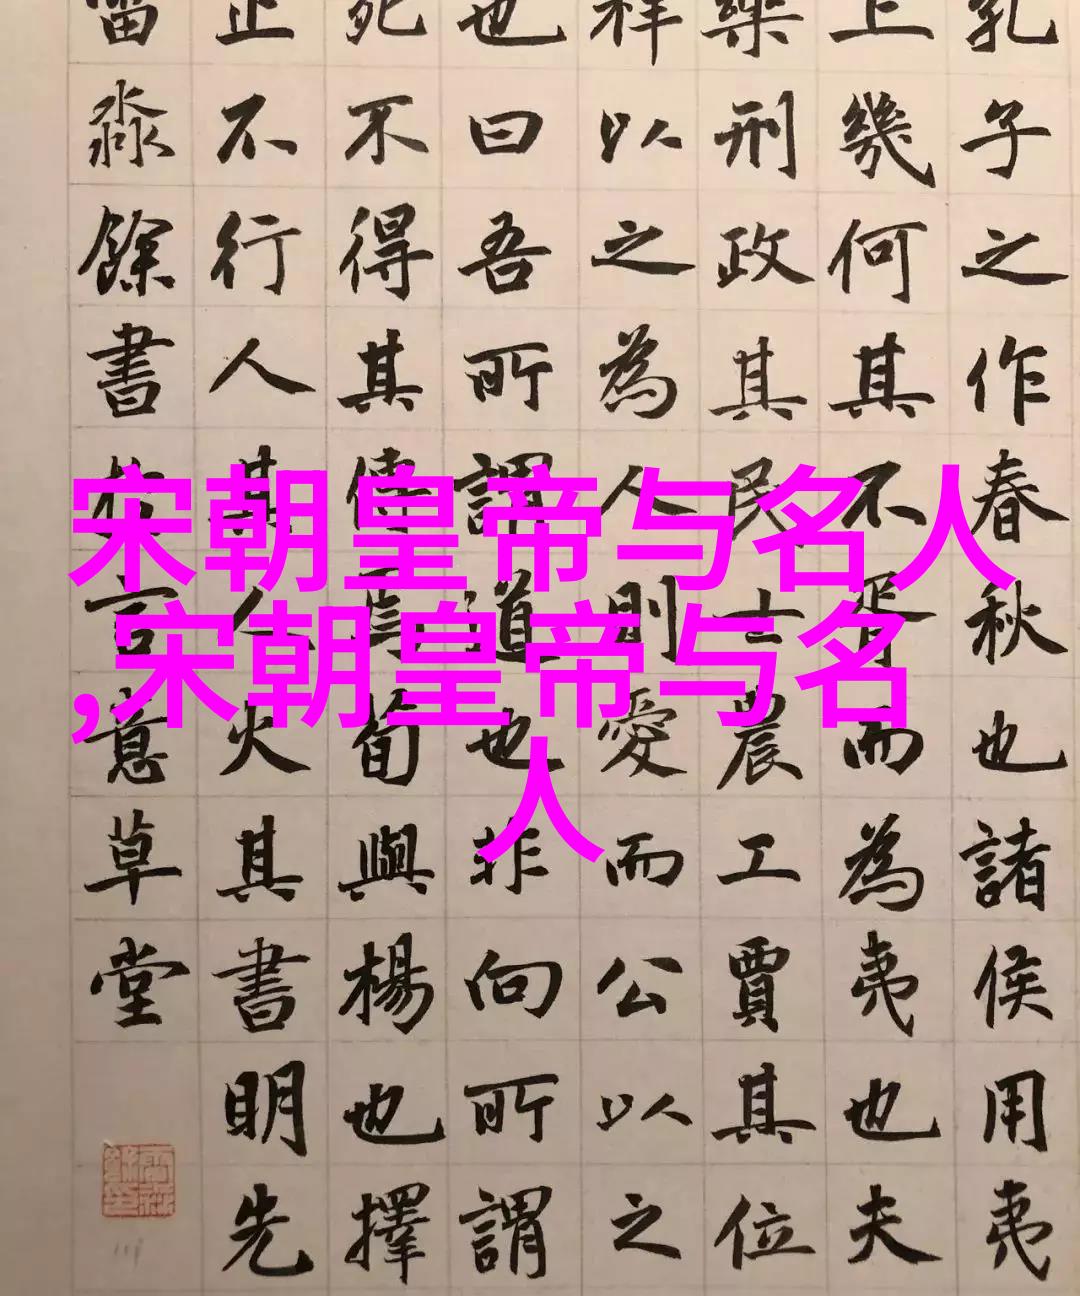 孔子之作春秋也諸侯用夷
上幾何其不胥而為夷也夫
樂刑政其民士農工賈其位
祥以之為人則愛而公以之
也曰吾所謂道也非向所謂
死不得其傳焉荀與楊也擇
止不行人其人火其書明先
淼餘書於意草堂
宋朝皇帝与名人
,宋朝皇帝与名
人